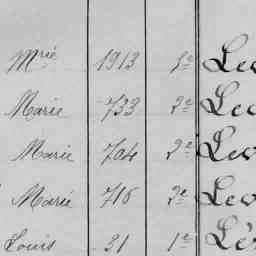 Mrie 1913 3e Lev
Marie 733 2e Lev
Marie 704 2e Lev
Marie 716 2e Lev
Louis 31 1e Lé